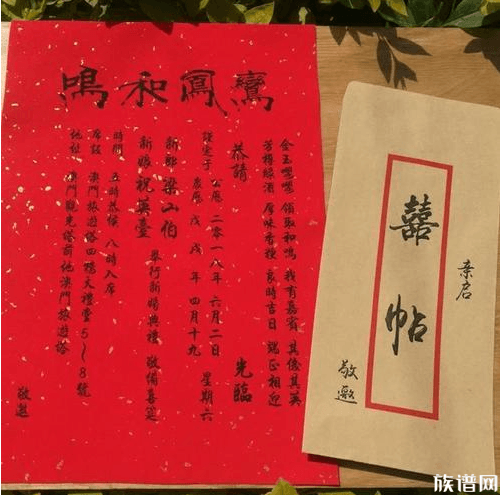 鸞鳳和鳴
金玉嘿嘿 領取和鳴 我有嘉賓 其儀其英
芳樽綠酒 厚味香粳 良時吉日 端正相迎
恭請
光臨
謹定于
公歷 二零一八年六月二日 星期六
農歷 戊戌年四月十九
新郎 梁山伯
新娘 祝英臺
舉行新婚典禮 敬備喜筵
時間 五時恭候 八時入席
席設 澳門旅遊塔四樓大禮堂5~8號
地址 澳門觀光塔前地澳門旅遊塔
敬邀
亲启
囍帖
敬邀
族谱网